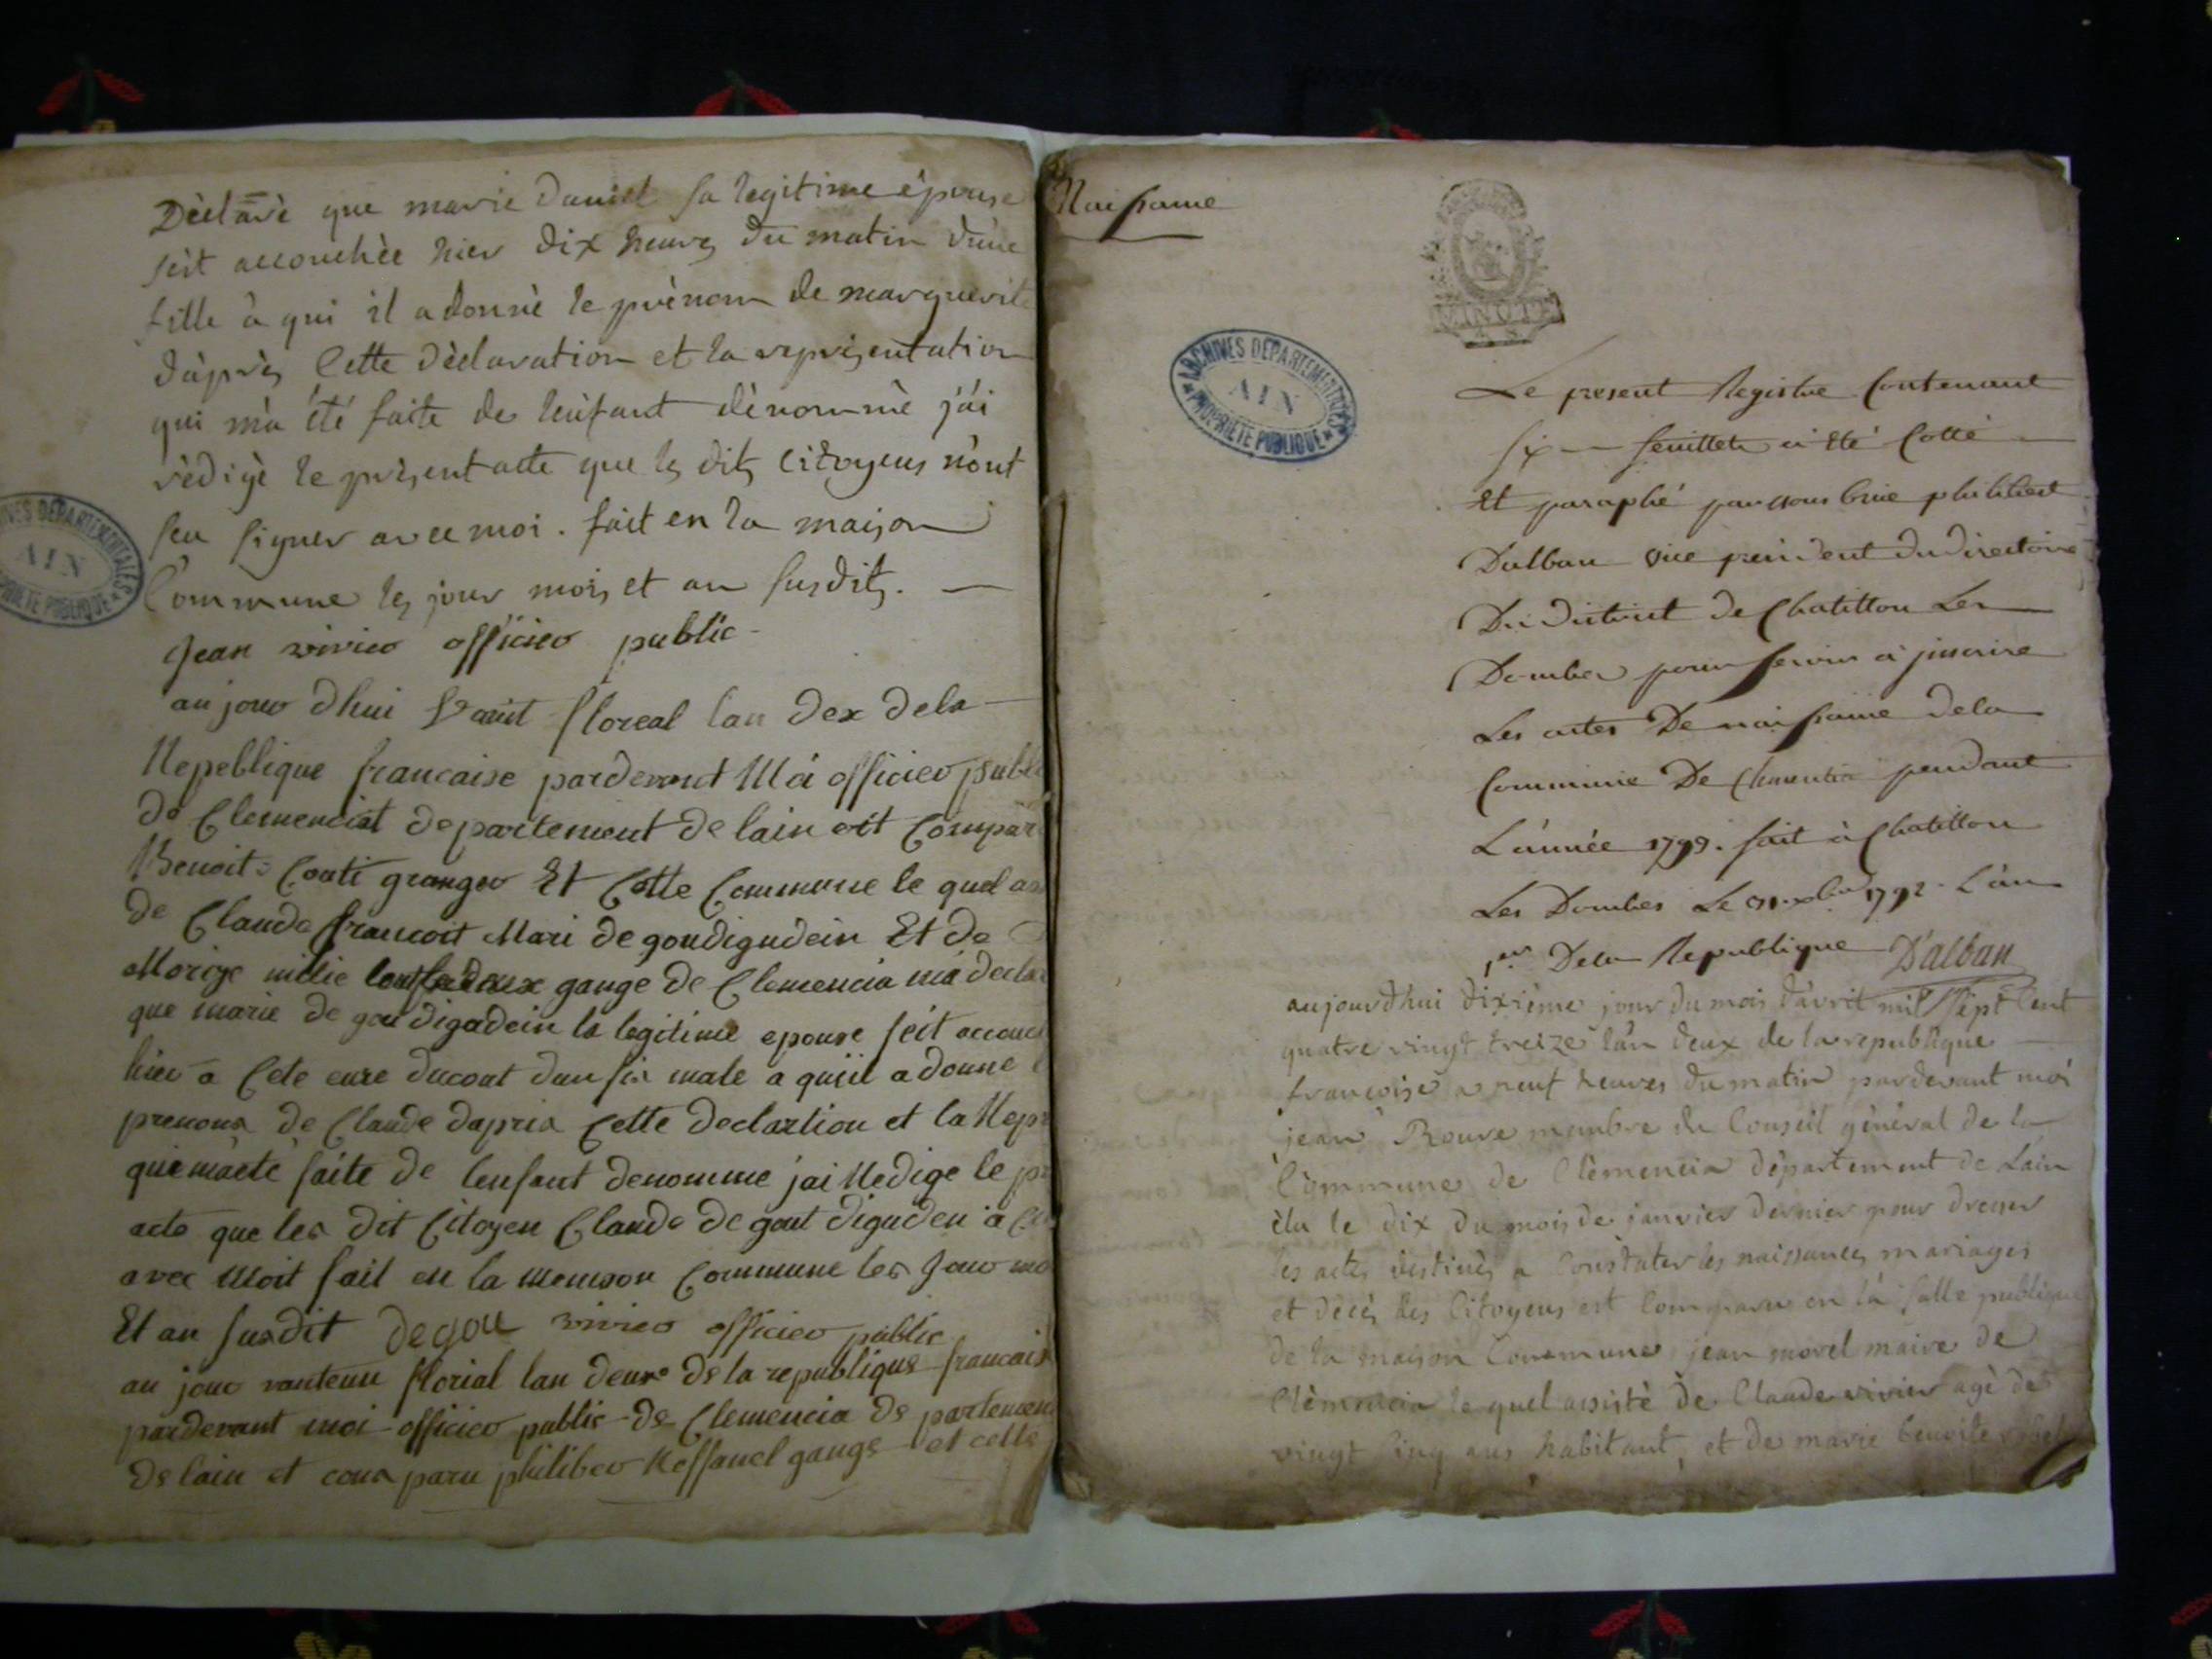 Dèclarè que marie daniel sa legitime èpouse
sèit accouchèe hier dix heures du matin d'une
fille à qui il a donnè le prènom de marguerit
d'àprès Cette dèclaration et la reprèsentation
qui m'a été faite de l'enfant dènommè j'ai
rèdigè le prèsent acte que les dits citoyens n'ont
sçu signer avec moi. fait en la maison
Commune les jour mois et an susdits.
Jean vivier officier public
aujour dhui Vaint floreal lan dex dela
Repeblique francaise pardevant Moi officier publ
de Clemenciat departement de lain est Compar
Benoit Couti granger Et Cette Commune le quel as
de Claude francoit Mari de goudigudein Et de
que marie de gou digadein la legitime epouse seit accouc
hier a Cete eure ducoat dun fis male a quiil a donne
prenoms de Claude dapres Cette declartion et la Repr
quemaete faite de lenfant denomme jai Redige le pr
acte que les dit Citoyen Claude de gout diguden a
avec Moit fait en la Memson Commune les Jour mo
Et an susdit degou vivier officier public
au jour vanteun florial lan deuxe de la republique francais
pardevant moi officier public de Clemencia de partemen
de lain et comparu philiber Reffanel gange et cette
Naissance
MINUTE
ARCHIVES DEPARTEMENTALES
AIN
PROPRIETE PUBLIQUE
Le present Registre Contenant
six feuillets a été Cotté
Et paraphé par nous brice philibert
Dalban vice president du directoire
Du district de Chatillon Les
Dombes pour servir à jnscrire
Les actes De naissance dela
Commune De Clementia pendant
L'année 1793. fait à Chatillon
Les Dombes Le 1792 L'an
1er Dela Republique D'alban
aujourd'hui dixième jour du mois d'avril mil sept Cent
quatre vingt treize l'an deux de la republique
françoise a neuf heures du matin pardevant moi
jean Rouve membre du Conseil gènèral de la
Commune de Clèmencia dèpartement de L'ain
èlu le dix du mois de janvier dernier pour dresser
les actes destinès a Constater les naissances mariages
et dècès des Citoyens est Comparu en la salle publique
de la maison Commune jean morel maire de
Clèmencia lequel assistè de Claude vivier agè de
vingt Cinq ans habitant, et de marie benoite